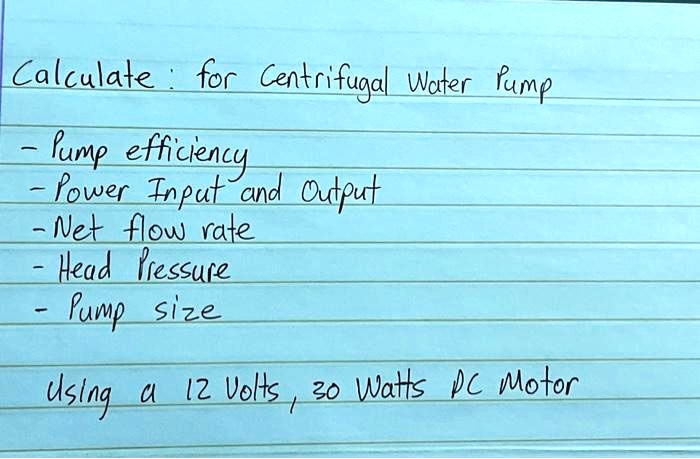 Calculate : for Centrifugal Water Pump
- Pump efficiency
- Power Input and Output
- Net flow rate
- Head Pressure
- Pump size
Using a 12 Volts, 30 Watts DC Motor